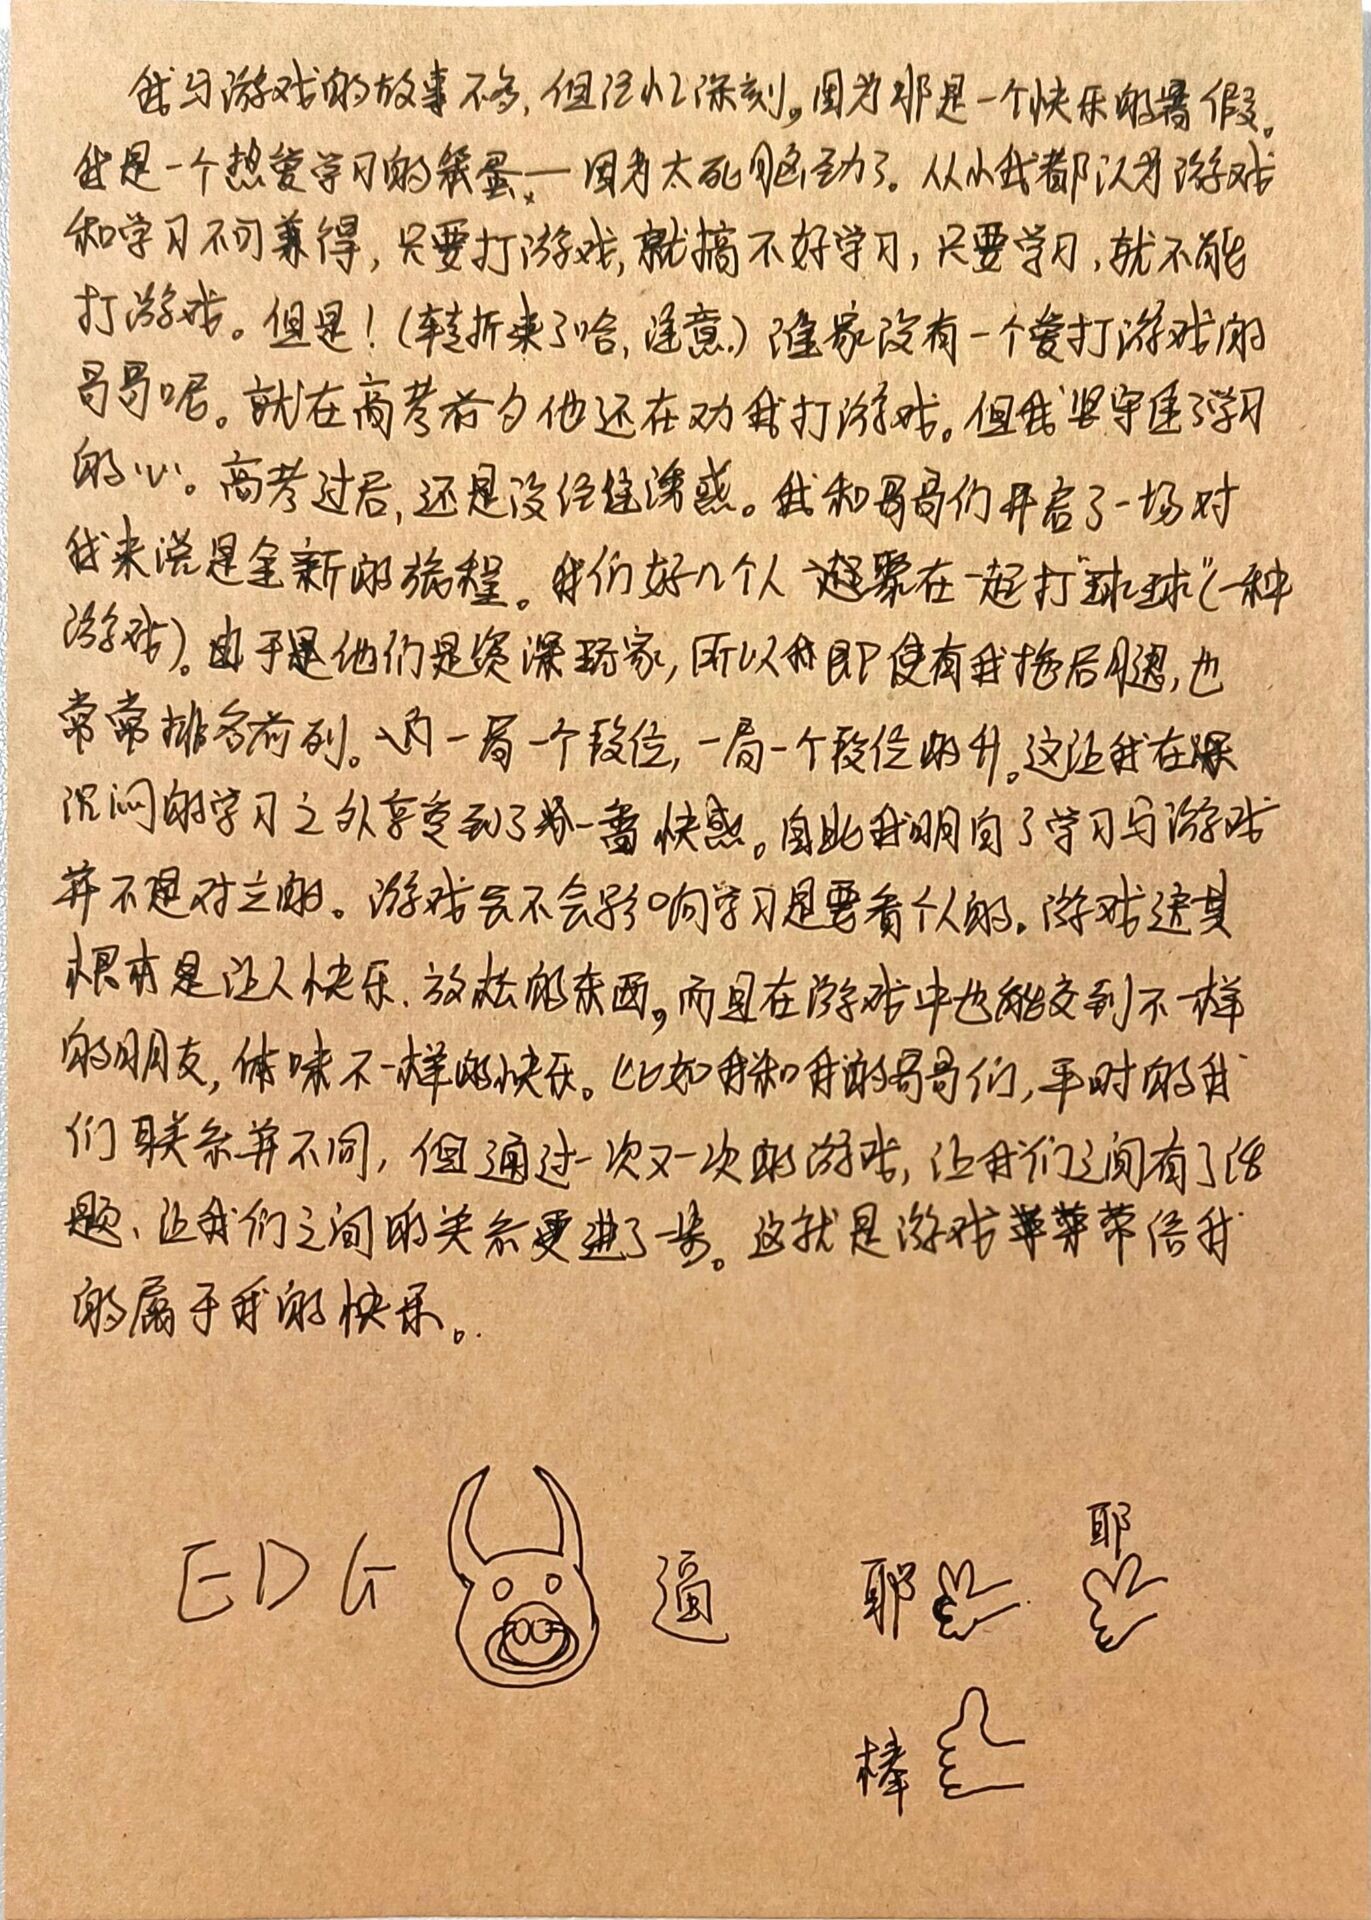 我与游戏的故事不多，但记忆深刻。因为那是一个快乐的暑假。
我是一个热爱学习的笨蛋——因为太死脑筋了。从小我都认为游戏
和学习不可兼得，只要打游戏，就搞不好学习，只要学习，就不能
打游戏。但是！（转折来了哈，注意）谁家没有一个爱打游戏的
哥哥呢。就在高考前夕他还在劝我打游戏。但我坚守住了学习
的心。高考过后，还是没经住诱惑。我和哥哥们开启了一场对
我来说是全新的旅程。我们好几个人聚在一起打“球球”（一种
游戏）。由于他们是资深玩家，所以即使有我拖后腿，也
常常排名前列。一局一个段位，一局一个段位的升。这让我在
沉闷的学习之外享受到了另一番快感。自此我明白了学习与游戏
并不是对立的。游戏会不会影响学习是要看个人的。游戏这其
根本是让人快乐、放松的东西。而且在游戏中也能交到不一样
的朋友，体味不一样的快乐。比如我和我的哥哥们，平时的我
们联系并不同，但通过一次又一次的游戏，让我们之间有了话
题、让我们之间的关系更进了一步。这就是游戏带给我
的属于我的快乐。
EDG 逼 耶 耶
棒